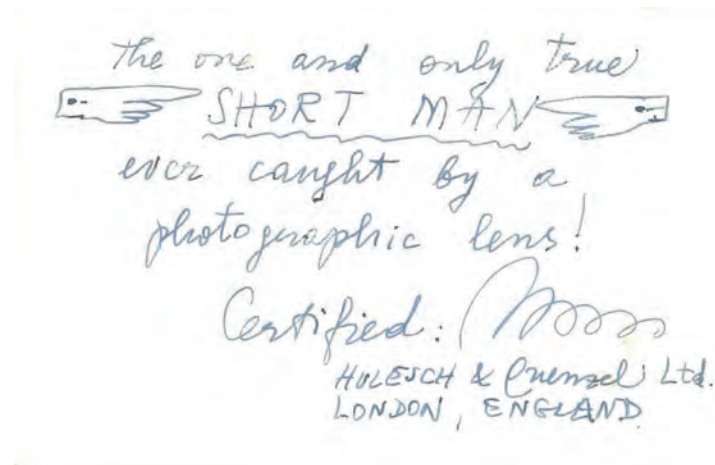 the one and only true
SHORT MAN
ever caught by a
photographic lens!
Certified:
HULESCH & Quenzel Ltd.
LONDON, ENGLAND